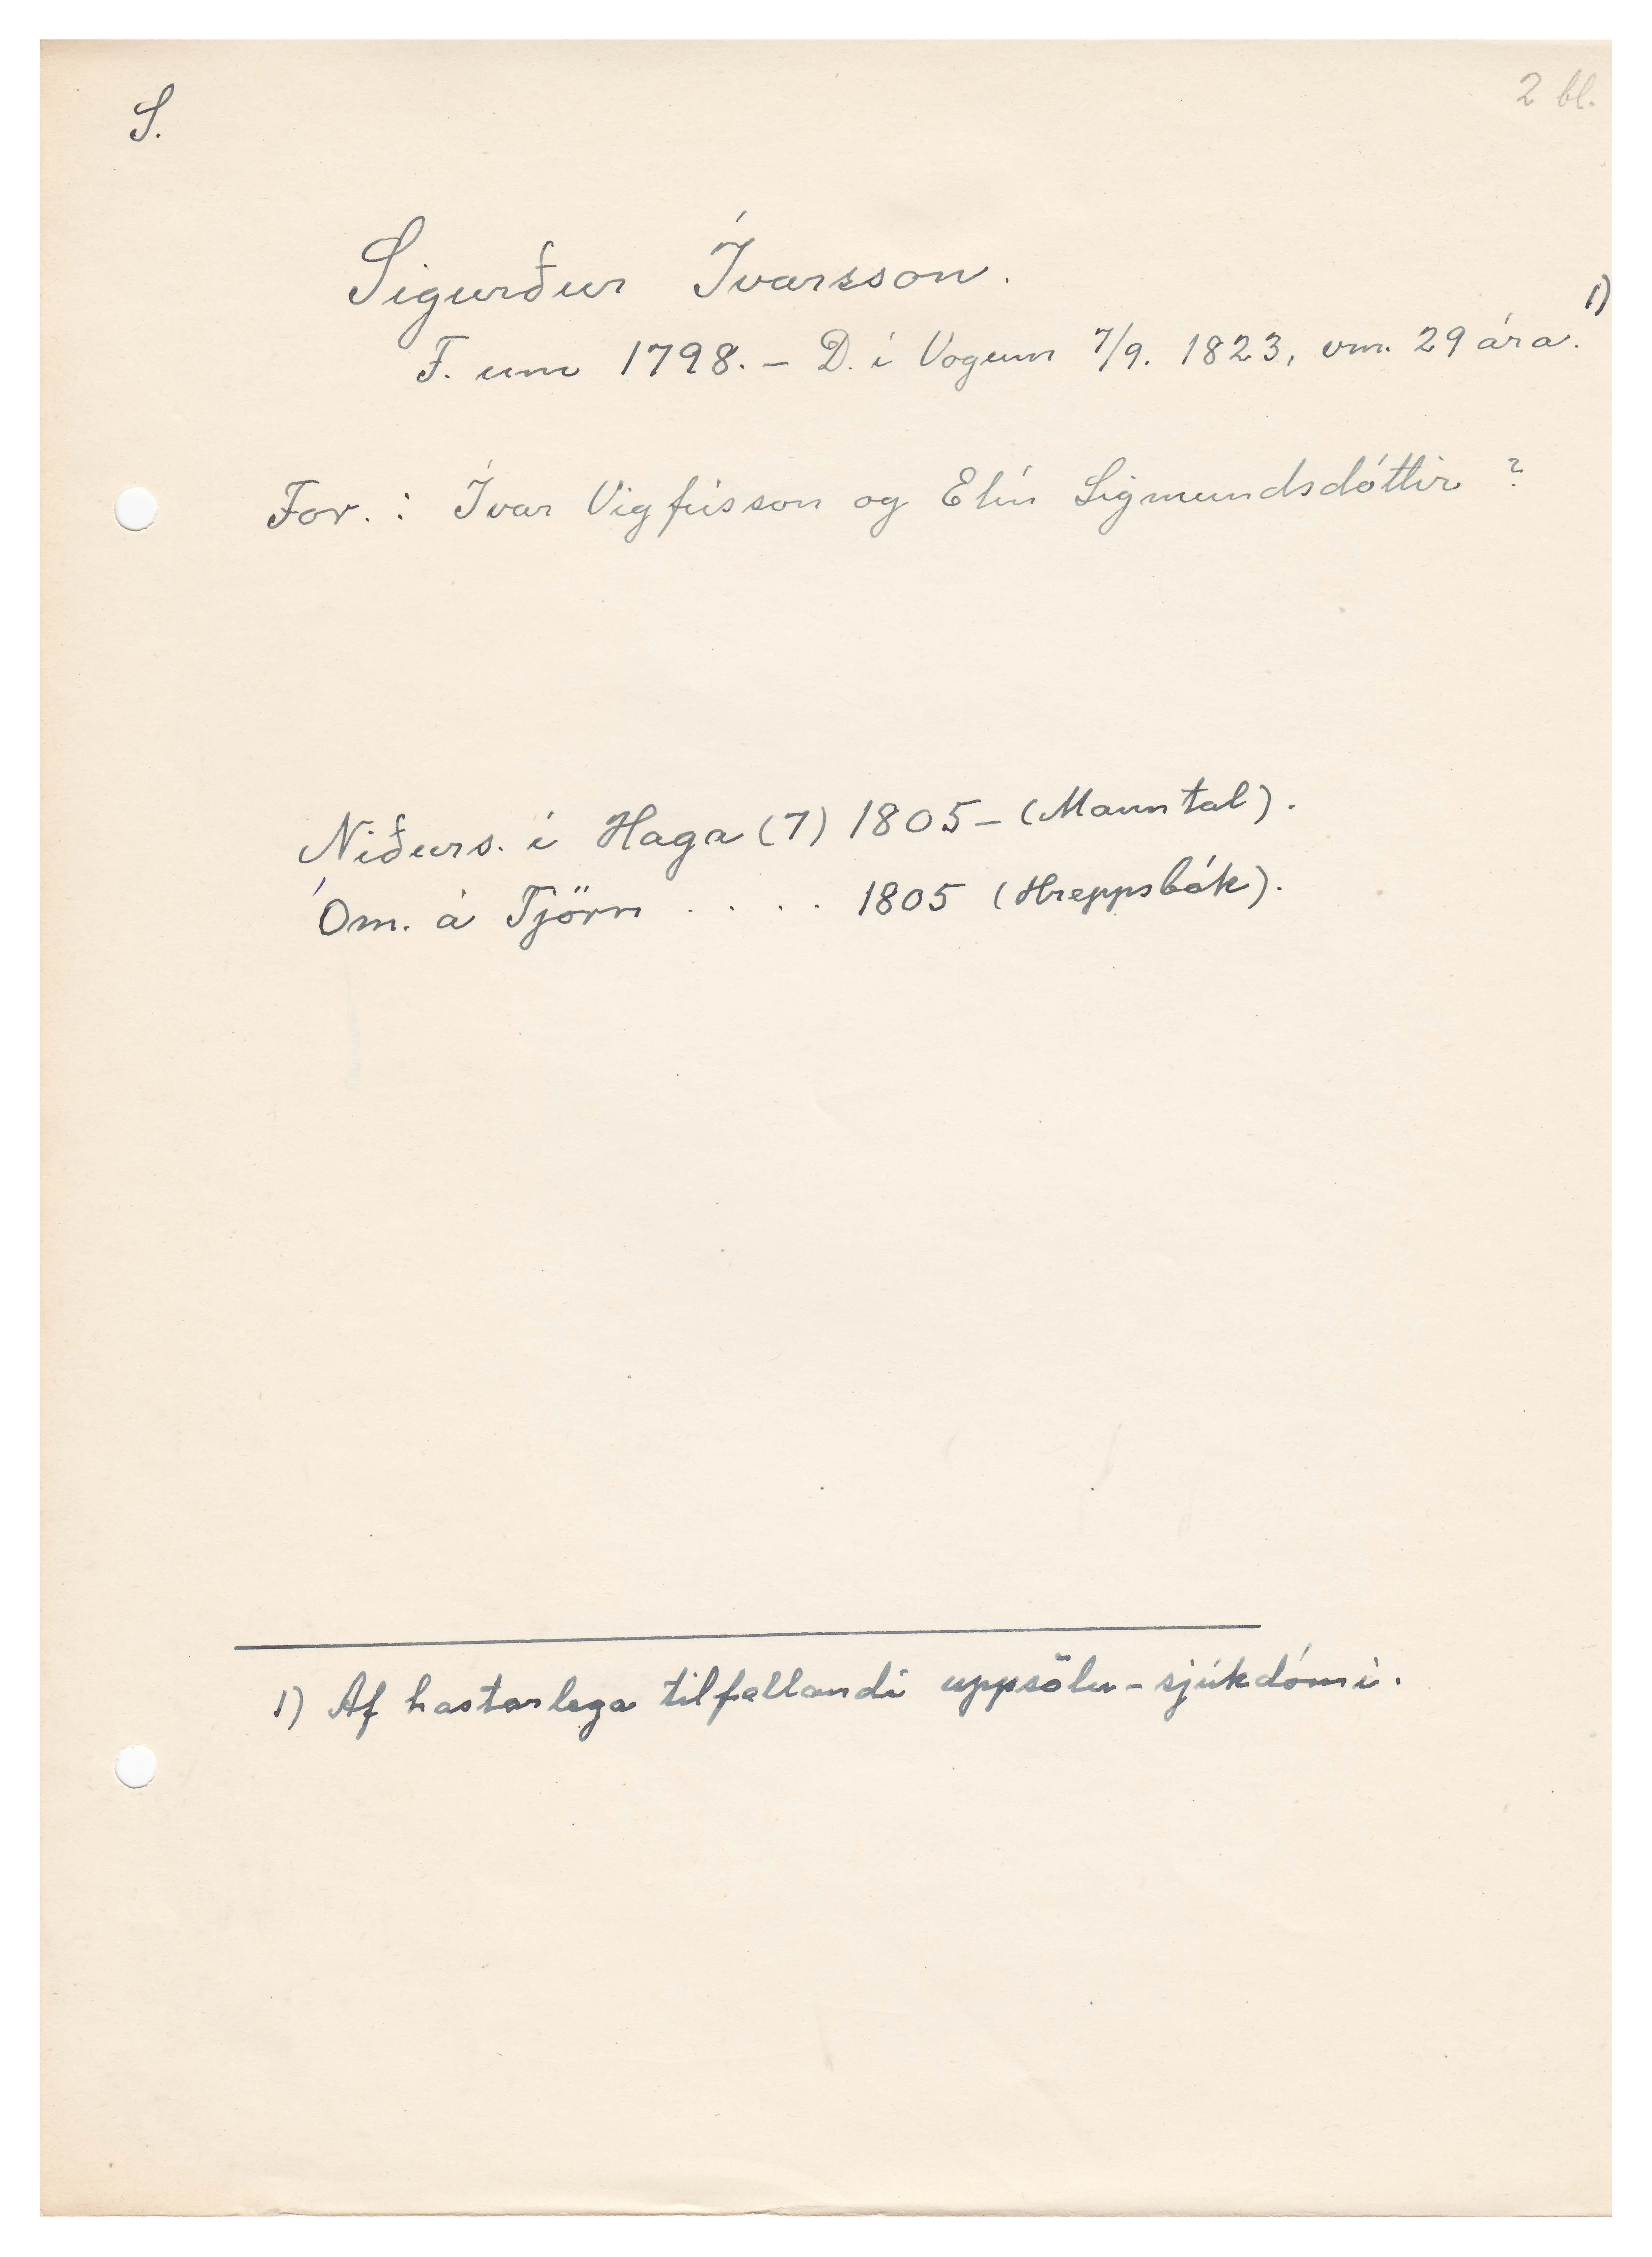 S.
2 bl.
Sigurður Ívarsson.
F. um 1798. - D. í Vogum 7/9. 1823, vm. 29 ára. 1)
For. : Ívar Vigfússon og Elín Sigmundsdóttir ?
Niðurs. í Haga (7) 1805 - (Manntal).
Óm. á Tjörn . . . . 1805 (Hreppsbók).
1) Af hastarlega tilfallandi uppsölu-sjúkdómi.